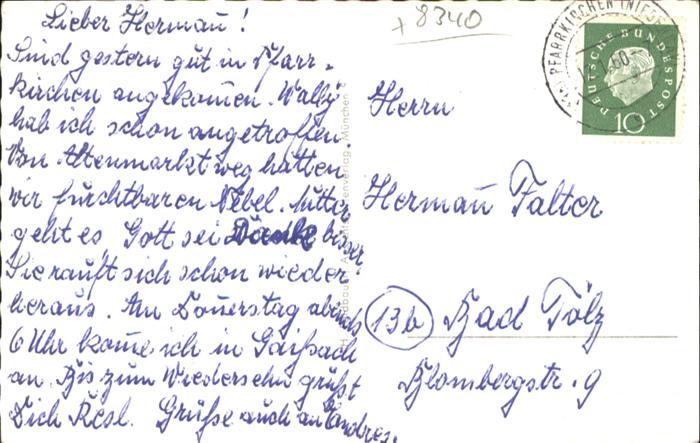 Lieber Hermañ!
Sind gestern gut in Pfarr-
kirchen angekom̄en. Wally
hab ich schon angetroffen.
Von Altenmarkt weg hatten
wir furchtbaren Nebel. Mutter
geht es Gott sei Danke besser
Sie rauft sich schon wieder
heraus. Am Don̄erstag abends
6 Uhr kom̄e ich in Gaißach
an. Bis zum Wiedersehn grüßt
Dich Resl. Grüße auch an andres.
+ 8340
PFARRKIRCHEN (NIEDERB
60
DEUTSCHE BUNDESPOST
10
Herrn
Herman̄ Falter
13b Bad Tölz
Blombergstr. 9
München